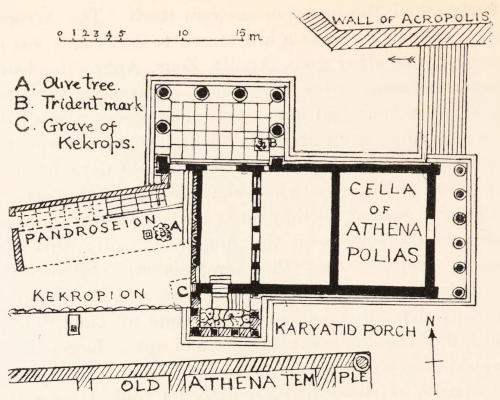 WALL OF ACROPOLIS
0 1 2 3 4 5 10 15 m
A. Olive tree.
B. Trident mark
C. Grave of
Kekrops.
B
PANDROSEION
A
CELLA
OF
ATHENA
POLIAS
KEKROPION
C
KARYATID PORCH
N
OLD ATHENA TEMPLE